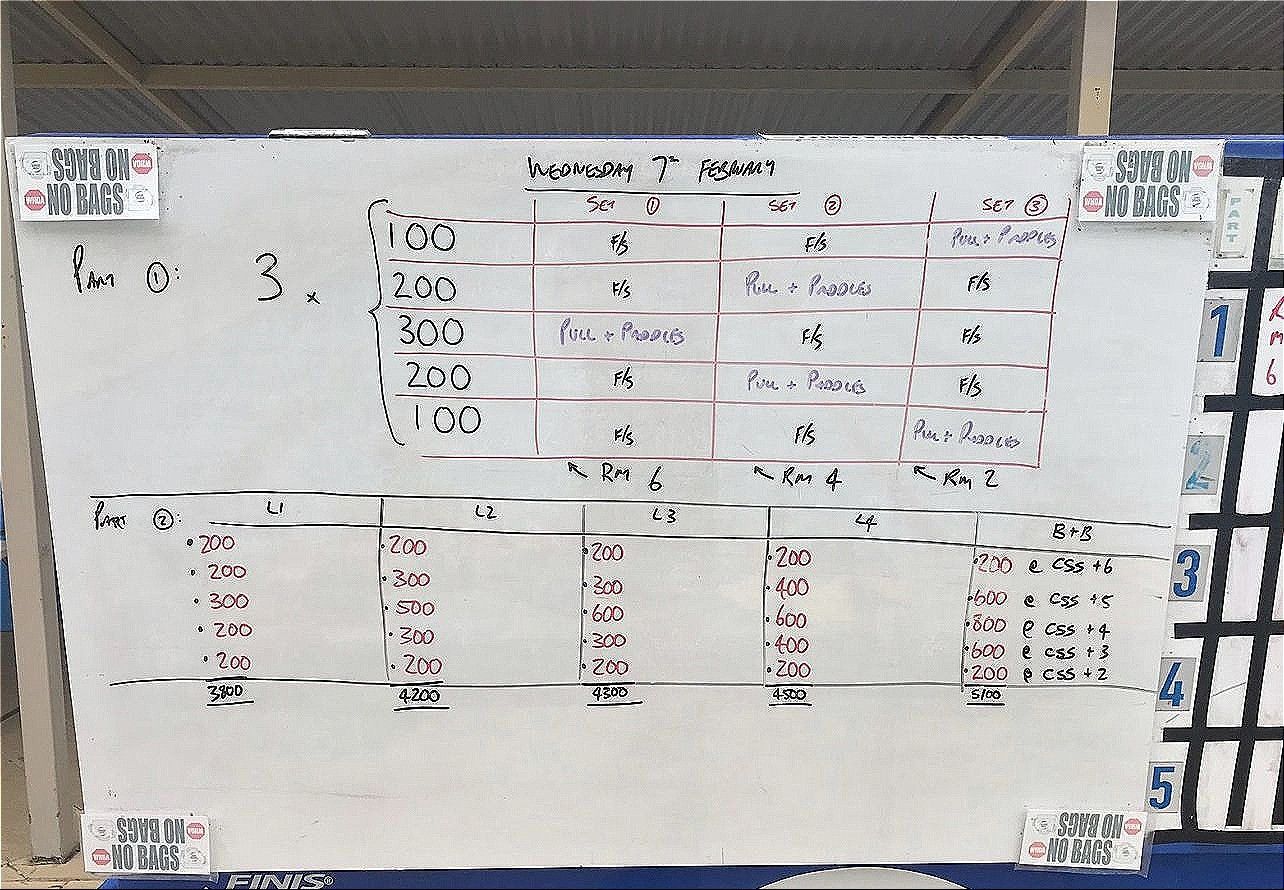 NO BAGS
WHOA
WHOA
NO BAGS
WEDNESDAY 7TH FEBRUARY
NO BAGS
WHOA
WHOA
NO BAGS
PART
SET 1 SET 2 SET 3
PART 1: 3 x
100 F/S F/S PULL + PADDLES
200 F/S PULL + PADDLES F/S
300 PULL + PADDLES F/S F/S
200 F/S PULL + PADDLES F/S
100 F/S F/S PULL + PADDLES
RM 6 RM 4 RM 2
PART 2: L1 L2 L3 L4 B+B
200 200 200 200 200 @ CSS +6
200 300 300 400 600 @ CSS +5
300 500 600 600 800 @ CSS +4
200 300 300 400 600 @ CSS +3
200 200 200 200 200 @ CSS +2
3800 4200 4300 4500 5100
1
2
3
4
5
R
M
6
NO BAGS
WHOA
WHOA
NO BAGS
NO BAGS
WHOA
WHOA
NO BAGS
FINIS®